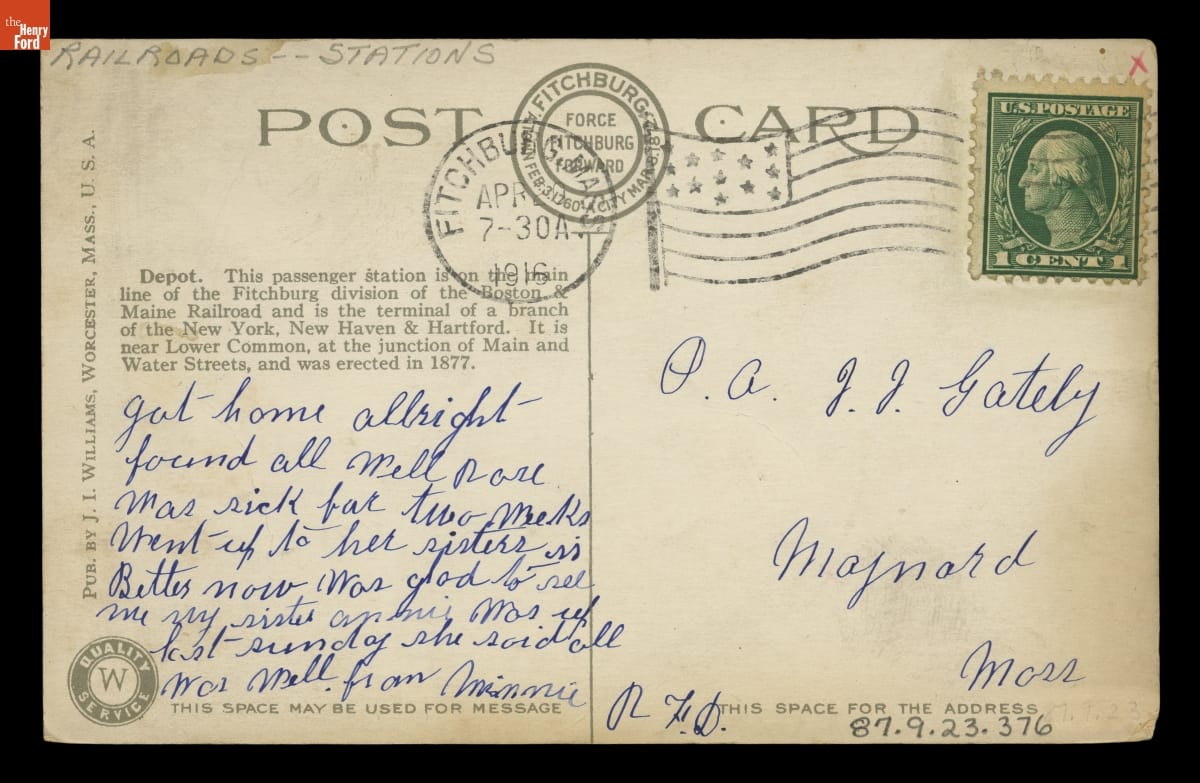 the
Henry
Ford
RAILROADS -- STATIONS
POST CARD
FITCHBURG
FORCE
FITCHBURG
FORWARD
A TOWN FEB. 3, 1760 A CITY MAR. 8, 1872
FITCHBURG, MASS
APR
7-30A.
1916
U.S. POSTAGE
1 CENT 1
PUB. BY J. I. WILLIAMS, WORCESTER, MASS., U. S. A.
Depot. This passenger station is on the main
line of the Fitchburg division of the Boston &
Maine Railroad and is the terminal of a branch
of the New York, New Haven & Hartford. It is
near Lower Common, at the junction of Main and
Water Streets, and was erected in 1877.
got home allright
found all well Rose
was sick for two weeks
went up to her sisters is
Better now was glad to see
me my sister annie was up
last sunday she said all
was well. from Minnie
QUALITY
W
SERVICE
THIS SPACE MAY BE USED FOR MESSAGE
J. J. Gately
Maynard
Mass
R F. D.
THIS SPACE FOR THE ADDRESS
87.9.23.376